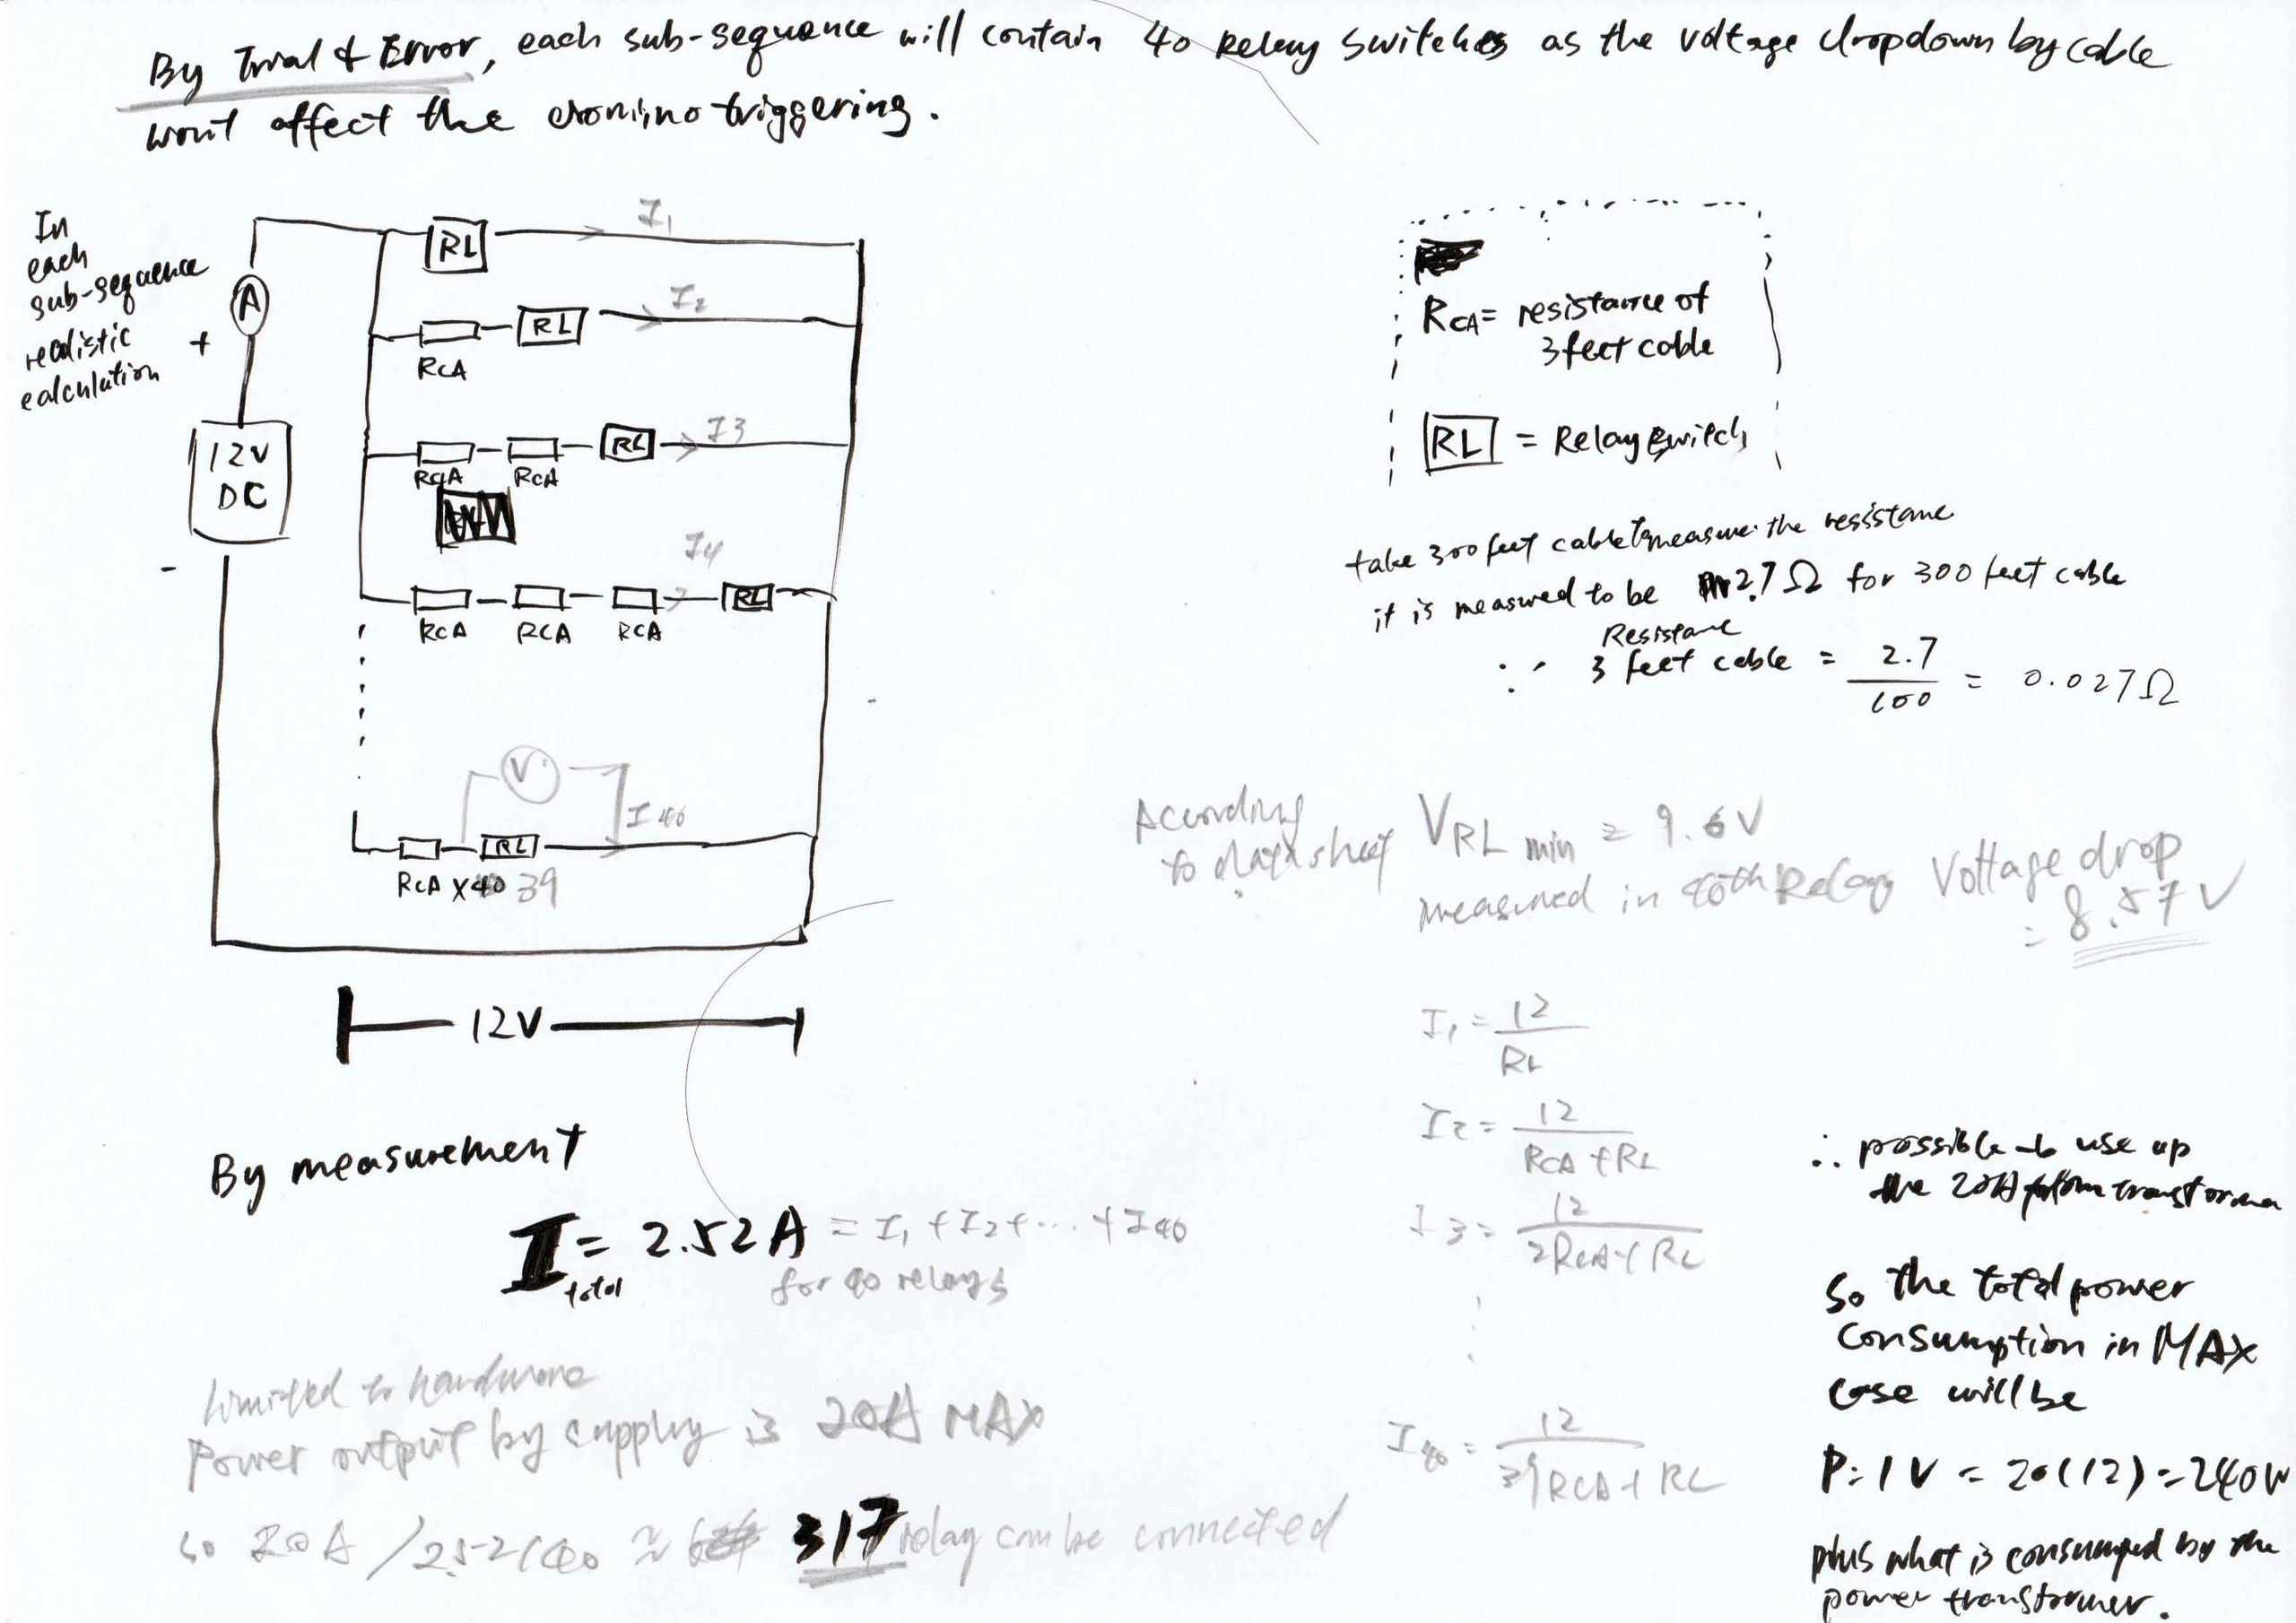 By Trial & Error, each sub-sequence will contain 40 Relay Switches as the voltage dropdown by cable
wont affect the domino triggering.
In
each
sub-sequence
realistic
calculation
A
+
12V
DC
-
RL
I1
RCA
RL
I2
RCA
RCA
RL
I3
RCA
RCA
RCA
RL
I4
V
RL
I40
RCA X 39
12V
RCA = resistance of
3 feet cable
RL = Relay Switch
take 300 feet cable to measure the resistance
it is measured to be 2.7Ω for 300 feet cable
Resistance
∵ 3 feet cable = 2.7 / 100 = 0.027Ω
According
to datasheet
VRL min = 9.6V
measured in 40th Relay Voltage drop
= 8.57V
I1 = 12 / RL
I2 = 12 / RCA + RL
I3 = 12 / 2RCA + RL
I40 = 12 / 39RCA + RL
By measurement
I total = 2.52A = I1 + I2 + ... + I40
for 40 relays
Limited to hardware
Power output by supply is 20A MAX
so 20A / 2.52/40 ≈ 317 relay can be connected
∴ possible to use up
the 20A transformer
So the total power
consumption in MAX
case will be
P = IV = 20(12) = 240W
plus what is consumed by the
power transformer.